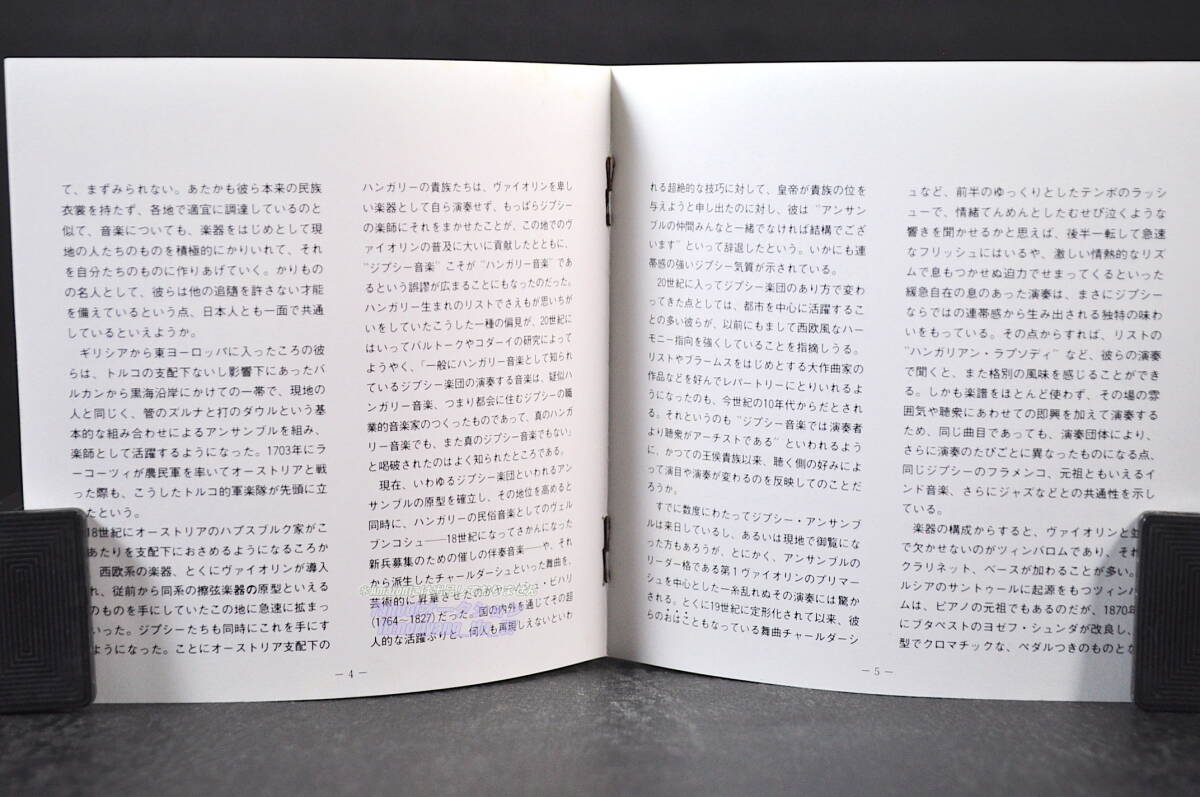 て、まずみられない。あたかも彼ら本来の民族
衣裳を持たず、各地で適宜に調達しているのと
似て、音楽についても、楽器をはじめとして現
地の人たちのものを積極的にかりいれて、それ
を自分たちのものに作りあげていく。かりもの
の名人として、彼らは他の追随を許さない才能
を備えているという点、日本人とも一面で共通
しているといえようか。
ギリシアから東ヨーロッパに入ったころの彼
らは、トルコの支配下ないし影響下にあったバ
ルカンから黒海沿岸にかけての一帯で、現地の
人と同じく、管のズルナと打のダウルという基
本的な組み合わせによるアンサンブルを組み、
楽師として活躍するようになった。1703年にラ
ーコーツィが農民軍を率いてオーストリアと戦
った際も、こうしたトルコ的軍楽隊が先頭に立
ったという。
18世紀にオーストリアのハプスブルク家がこ
あたりを支配下におさめるようになるころか
西欧系の楽器、とくにヴァイオリンが導入
れ、従前から同系の擦弦楽器の原型といえる
のものを手にしていたこの地に急速に拡まっ
いった。ジプシーたちも同時にこれを手にす
ようになった。ことにオーストリア支配下の
— 4 —
ハンガリーの貴族たちは、ヴァイオリンを卑し
い楽器として自ら演奏せず、もっぱらジプシー
の楽師にそれをまかせたことが、この地でのヴ
ァイオリンの普及に大いに貢献したとともに、
"ジプシー音楽" こそが "ハンガリー音楽" であ
るという誤謬が広まることにもなったのだった。
ハンガリー生まれのリストでさえもが思いちが
いをしていたこうした一種の偏見が、20世紀に
はいってバルトークやコダーイの研究によって
ようやく、「一般にハンガリー音楽として知られ
ているジプシー楽団の演奏する音楽は、疑似ハ
ンガリー音楽、つまり都会に住むジプシーの職
業的音楽家のつくったものであって、真のハンガ
リー音楽でも、また真のジプシー音楽でもない」
と喝破されたのはよく知られたところである。
現在、いわゆるジプシー楽団といわれるアン
サンブルの原型を確立し、その地位を高めると
同時に、ハンガリーの民俗音楽としてのヴェル
ブンコシュ——18世紀になってさかんになった
新兵募集のための催しの伴奏音楽——や、それ
から派生したチャールダーシュといった舞曲を、
芸術的に昇華させたのがヤーノシュ・ビハリ
(1764～1827)だった。国の内外を通じてその超
人的な活躍ぶりと、何人も再現しえないといわ
れる超絶的な技巧に対して、皇帝が貴族の位を
与えようと申し出たのに対し、彼は "アンサン
ブルの仲間みんなと一緒でなければ結構でござ
います" といって辞退したという。いかにも連
帯感の強いジプシー気質が示されている。
20世紀に入ってジプシー楽団のあり方で変わ
ってきた点としては、都市を中心に活躍するこ
との多い彼らが、以前にもまして西欧風なハー
モニー指向を強くしていることを指摘しうる。
リストやブラームスをはじめとする大作曲家の
作品などを好んでレパートリーにとりいれるよ
うになったのも、今世紀の10年代からだとされ
る。それというのも "ジプシー音楽では演奏者
より聴衆がアーチストである" といわれるよう
に、かつての王侯貴族以来、聴く側の好みによ
って演目や演奏が変わるのを反映してのことだ
ろうか。
すでに数度にわたってジプシー・アンサンブ
ルは来日しているし、あるいは現地で御覧にな
った方もあろうが、とにかく、アンサンブルの
リーダー格である第1ヴァイオリンのプリマー
シュを中心とした一糸乱れぬその演奏には驚か
される。とくに19世紀に定形化されて以来、彼
らのおはこともなっている舞曲チャールダーシ
— 5 —
ュなど、前半のゆっくりとしたテンポのラッシ
ューで、情緒てんめんとしたむせび泣くような
響きを聞かせるかと思えば、後半一転して急速
なフリッシュにはいるや、激しい情熱的なリズ
ムで息もつかせぬ迫力でせまってくるといった
緩急自在の息のあった演奏は、まさにジプシー
ならではの連帯感から生み出される独特の味わ
いをもっている。その点からすれば、リストの
"ハンガリアン・ラプソディ" など、彼らの演奏
で聞くと、また格別の風味を感じることができ
る。しかも楽譜をほとんど使わず、その場の雰
囲気や聴衆にあわせての即興を加えて演奏する
ため、同じ曲目であっても、演奏団体により、
さらに演奏のたびごとに異なったものになる点、
同じジプシーのフラメンコ、元祖ともいえるイ
ンド音楽、さらにジャズなどとの共通性を示し
ている。
楽器の構成からすると、ヴァイオリンと並
で欠かせないのがツィンバロムであり、それ
クラリネット、ベースが加わることが多い。
ルシアのサントゥールに起源をもつツィンバ
ムは、ピアノの元祖でもあるのだが、1870年
にブダペストのヨゼフ・シュンダが改良し、
型でクロマチックな、ペダルつきのものとな